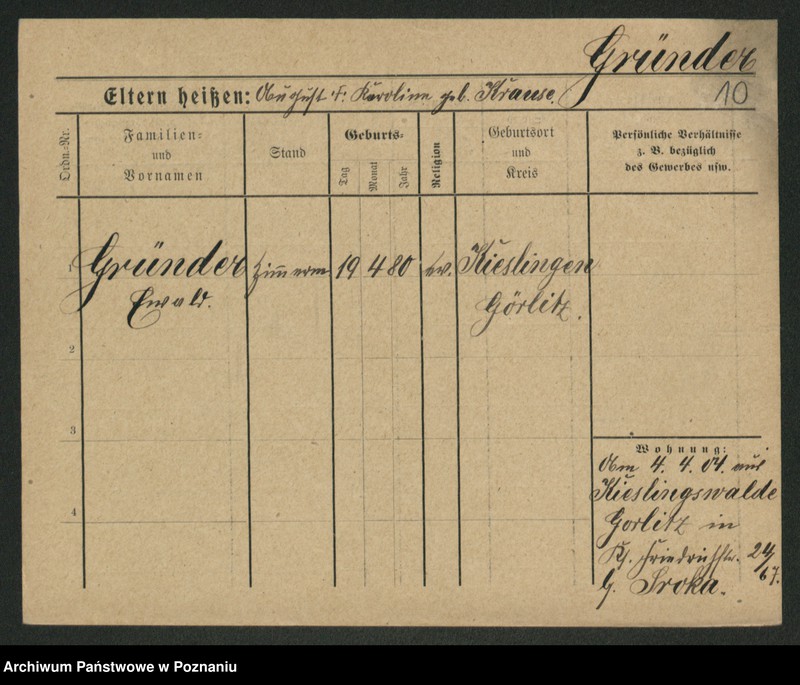 Gründer
10
Eltern heißen: August u. Karoline geb. Krause.
Ordn.-Nr.
Familien-
und
Vornamen
Stand
Geburts-
Tag
Monat
Jahr
Religion
Geburtsort
und
Kreis
Persönliche Verhältnisse
z. B. bezüglich
des Gewerbes usw.
1 Gründer Zimmerm 19 4 80 ev. Kieslingen
Ewald. Görlitz.
2
3
4
Wohnung:
Am 4. 4. 04. aus
Kieslingswalde
Görlitz in
Friedrichstr. 24/
67.
b. Sroka.
Archiwum Państwowe w Poznaniu